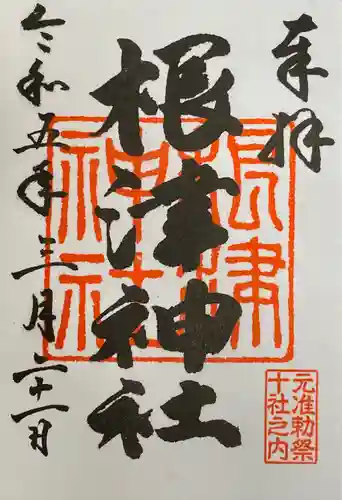 奉拝
根津神社
令和五年三月二十一日
根津
神社
元准勅祭
十社之内